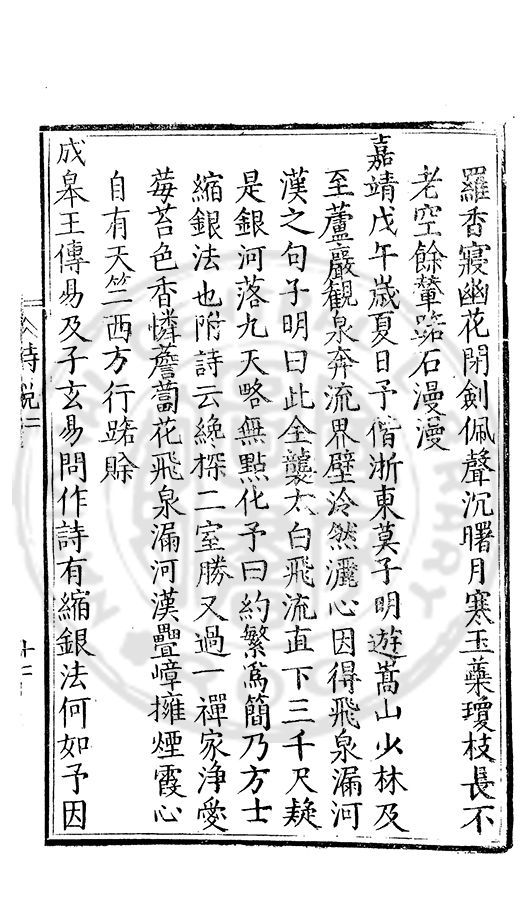 羅香寢幽花閉劍佩聲沉曙月寒玉蘂瓊枝長不
老空餘輦路石漫漫
嘉靖戊午歲夏日予偕浙東莫子明遊嵩山少林及
至蘆巖觀泉奔流界壁泠然灑心因得飛泉漏河
漢之句子明曰此全襲太白飛流直下三千尺疑
是銀河落九天略無點化予曰約繁爲簡乃方士
縮銀法也附詩云纔探二室勝又過一禪家淨愛
莓苔色香憐薝蔔花飛泉漏河漢疊嶂擁煙霞心
自有天竺西方行路賖
成皋王傳易及子玄易問作詩有縮銀法何如予因
詩說二
十二